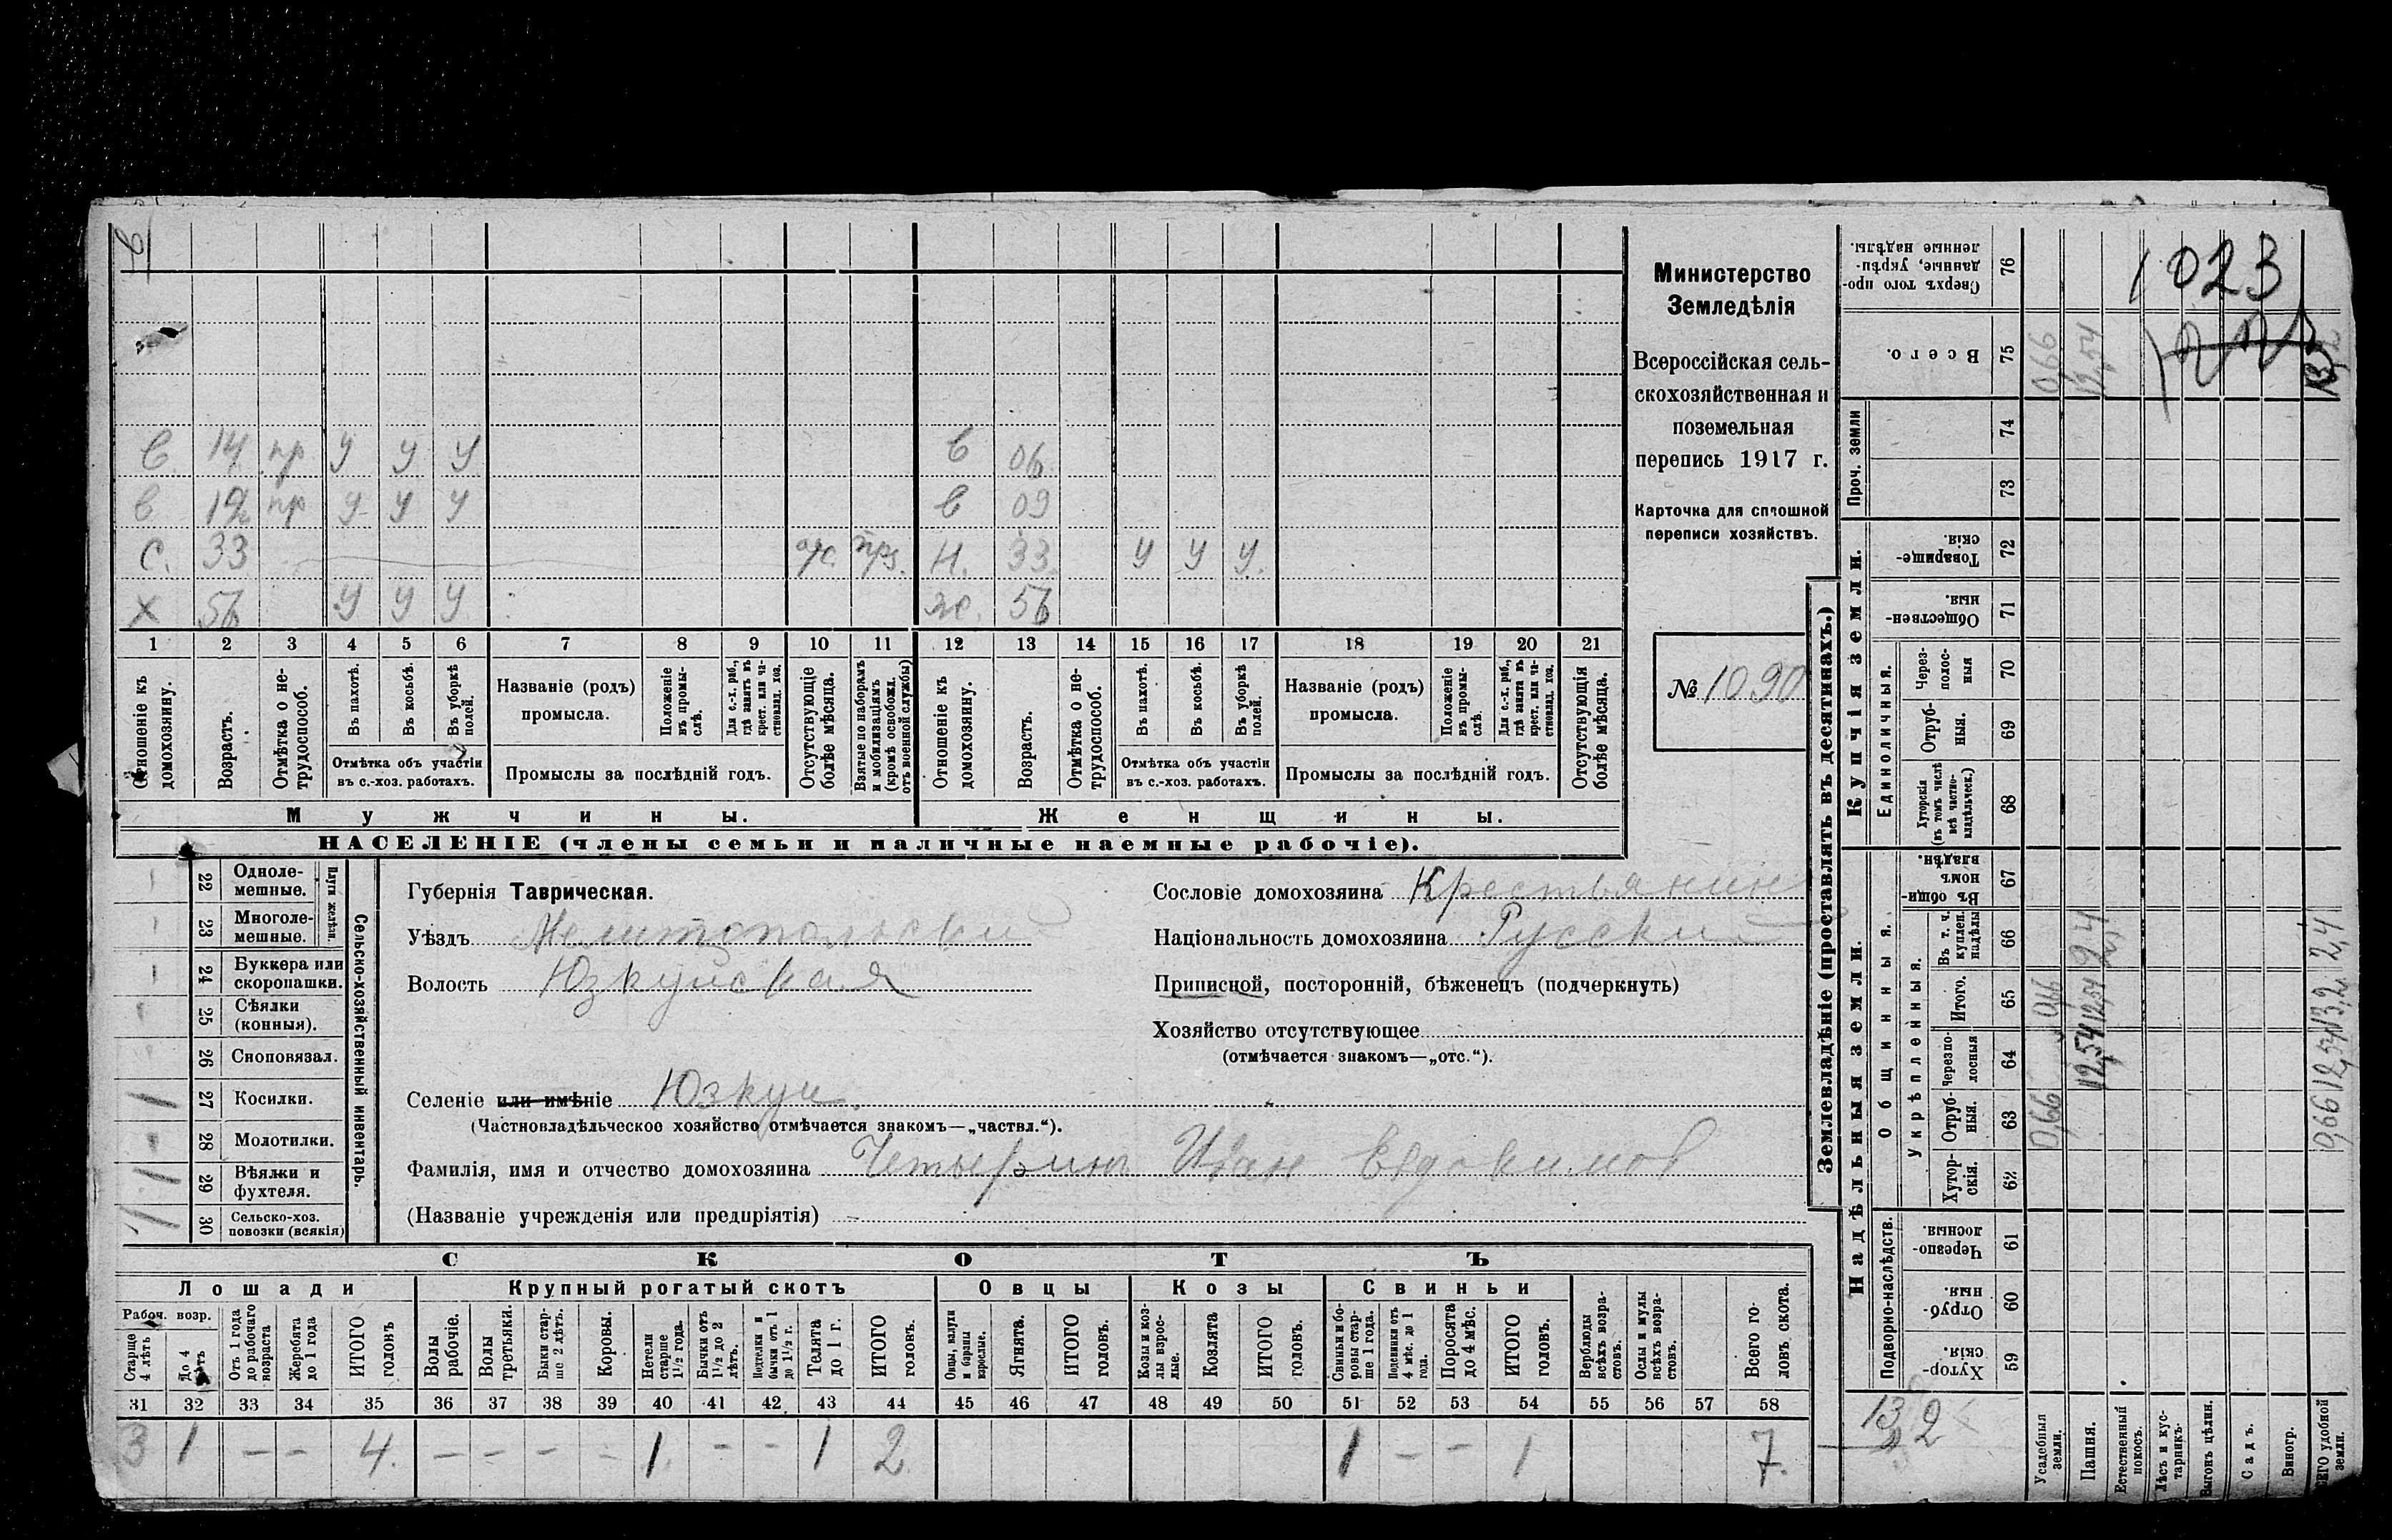 в 14 пр у у у в 06
в 12 пр у у у в 09
с. 33 отс. Н. 33 у у у.
х 56 у у у ж. 56
1 2 3 4 5 6 7 8 9 10 11 12 13 14 15 16 17 18 19 20 21
Отношеніе къ домохозяину.
Возрастъ.
Отмѣтка о не-трудоспособ.
Въ пахотѣ.
Въ косьбѣ.
Въ уборкѣ полей.
Отмѣтка объ участіи въ с.-хоз. работахъ.
Названіе (родъ) промысла.
Положеніе въ промы-слѣ.
Для с.-х. раб., гдѣ занятъ въ крест. или ча-стновлад. хоз.
Промыслы за послѣдній годъ.
Отсутствующіе болѣе мѣсяца.
Взятые по наборамъ и мобилизаціямъ (кромѣ освобожд. отъ военной службы)
Отношеніе къ домохозяину.
Возрастъ.
Отмѣтка о не-трудоспособ.
Въ пахотѣ.
Въ косьбѣ.
Въ уборкѣ полей.
Отмѣтка объ участіи въ с.-хоз. работахъ.
Названіе (родъ) промысла.
Положеніе въ промы-слѣ.
Для с.-х. раб., гдѣ занята въ крест. или ча-стновлад. хоз.
Промыслы за послѣдній годъ.
Отсутствующія болѣе мѣсяца.
Мужчины. Женщины.
НАСЕЛЕНІЕ (члены семьи и наличные наемные рабочіе).
Министерство
Земледѣлія
Всероссійская сель-
скохозяйственная и
поземельная
перепись 1917 г.
Карточка для сплошной
переписи хозяйствъ.
№ 1090
22 Одноле-мешные.
23 Многоле-мешные.
Плуги желѣзн.
24 Буккера или скоропашки.
25 Сѣялки (конныя).
26 Сноповязал.
27 Косилки. 1
28 Молотилки.
29 Вѣялки и фухтеля. 1
30 Сельско-хоз. повозки (всякія) 1
Сельско-хозяйственный инвентарь.
Губернія Таврическая.
Уѣздъ Мелитопольский
Волость Юзкуйская
Селеніе или имѣніе Юзкуи.
(Частновладѣльческое хозяйство отмѣчается знакомъ—„частвл.“).
Фамилія, имя и отчество домохозяина Четырин Иван Евдокимов
(Названіе учрежденія или предпріятія)
Сословіе домохозяина Крестьянин
Національность домохозяина Русский
Приписной, посторонній, бѣженецъ (подчеркнуть)
Хозяйство отсутствующее
(отмѣчается знакомъ—„отс.“).
СКОТЪ
Лошади Крупный рогатый скотъ Овцы Козы Свиньи
Рабоч. возр.
Старше 4 лѣтъ
До 4 лѣтъ
Отъ 1 года до рабочаго возраста
Жеребята до 1 года
ИТОГО головъ
Волы рабочіе.
Волы третьяки.
Быки стар-ше 2 лѣтъ.
Коровы.
Нетели старше 1½ года.
Бычки отъ 1½ до 2 лѣтъ.
Подтелки и бычки отъ 1 до 1½ г.
Телята до 1 г.
ИТОГО головъ.
Овцы, валухи и бараны взрослые.
Ягнята.
ИТОГО головъ.
Козы и коз-лы взрос-лые.
Козлята
ИТОГО головъ.
Свиньи и бо-ровы стар-ше 1 года.
Подсвинки отъ 4 мѣс. до 1 года.
Поросята до 4 мѣс.
ИТОГО головъ.
Верблюды всѣхъ возра-стовъ.
Ослы и мулы всѣхъ возра-стовъ.
Всего го-ловъ скота.
31 32 33 34 35 36 37 38 39 40 41 42 43 44 45 46 47 48 49 50 51 52 53 54 55 56 57 58
3 1 — — 4. — — — — 1. — — 1 2 1 — — 1 7.
Землевладѣніе (проставлять въ десятинахъ.)
1023
Сверхъ того про-данные, укрѣп-ленные надѣлы. 76
Всего. 75 0,66 12,54 13,2
Проч. земли 74
73
Купчія земли.
Товарище-скія. 72
Обществен-ныя. 71
Единоличныя.
Через-полос-ныя 70
Отруб-ныя. 69
Хуторскія (въ томъ числѣ всѣ частно-владѣльческ.) 68
Надѣльныя земли.
Общинныя.
Въ общин-номъ владѣн. 67
Укрѣпленныя.
Въ т. ч. куплен. надѣлы 66 2,4 2,4
Итого. 65 0,66 12,54 13,2
Черезпо-лосныя 64 12,54 12,54
Отруб-ныя. 63 0,66 0,66
Хутор-скія. 62
Подворно-наслѣдств.
Черезпо-лосныя. 61
Отруб-ныя. 60
Хутор-скія. 59
13,2
Усадебныя земли.
Пашня.
Естественный покосъ.
Лѣсъ и кус-тарникъ.
Выгонъ цѣлин.
Садъ.
Виногр.
ВСЕГО удобной земли.